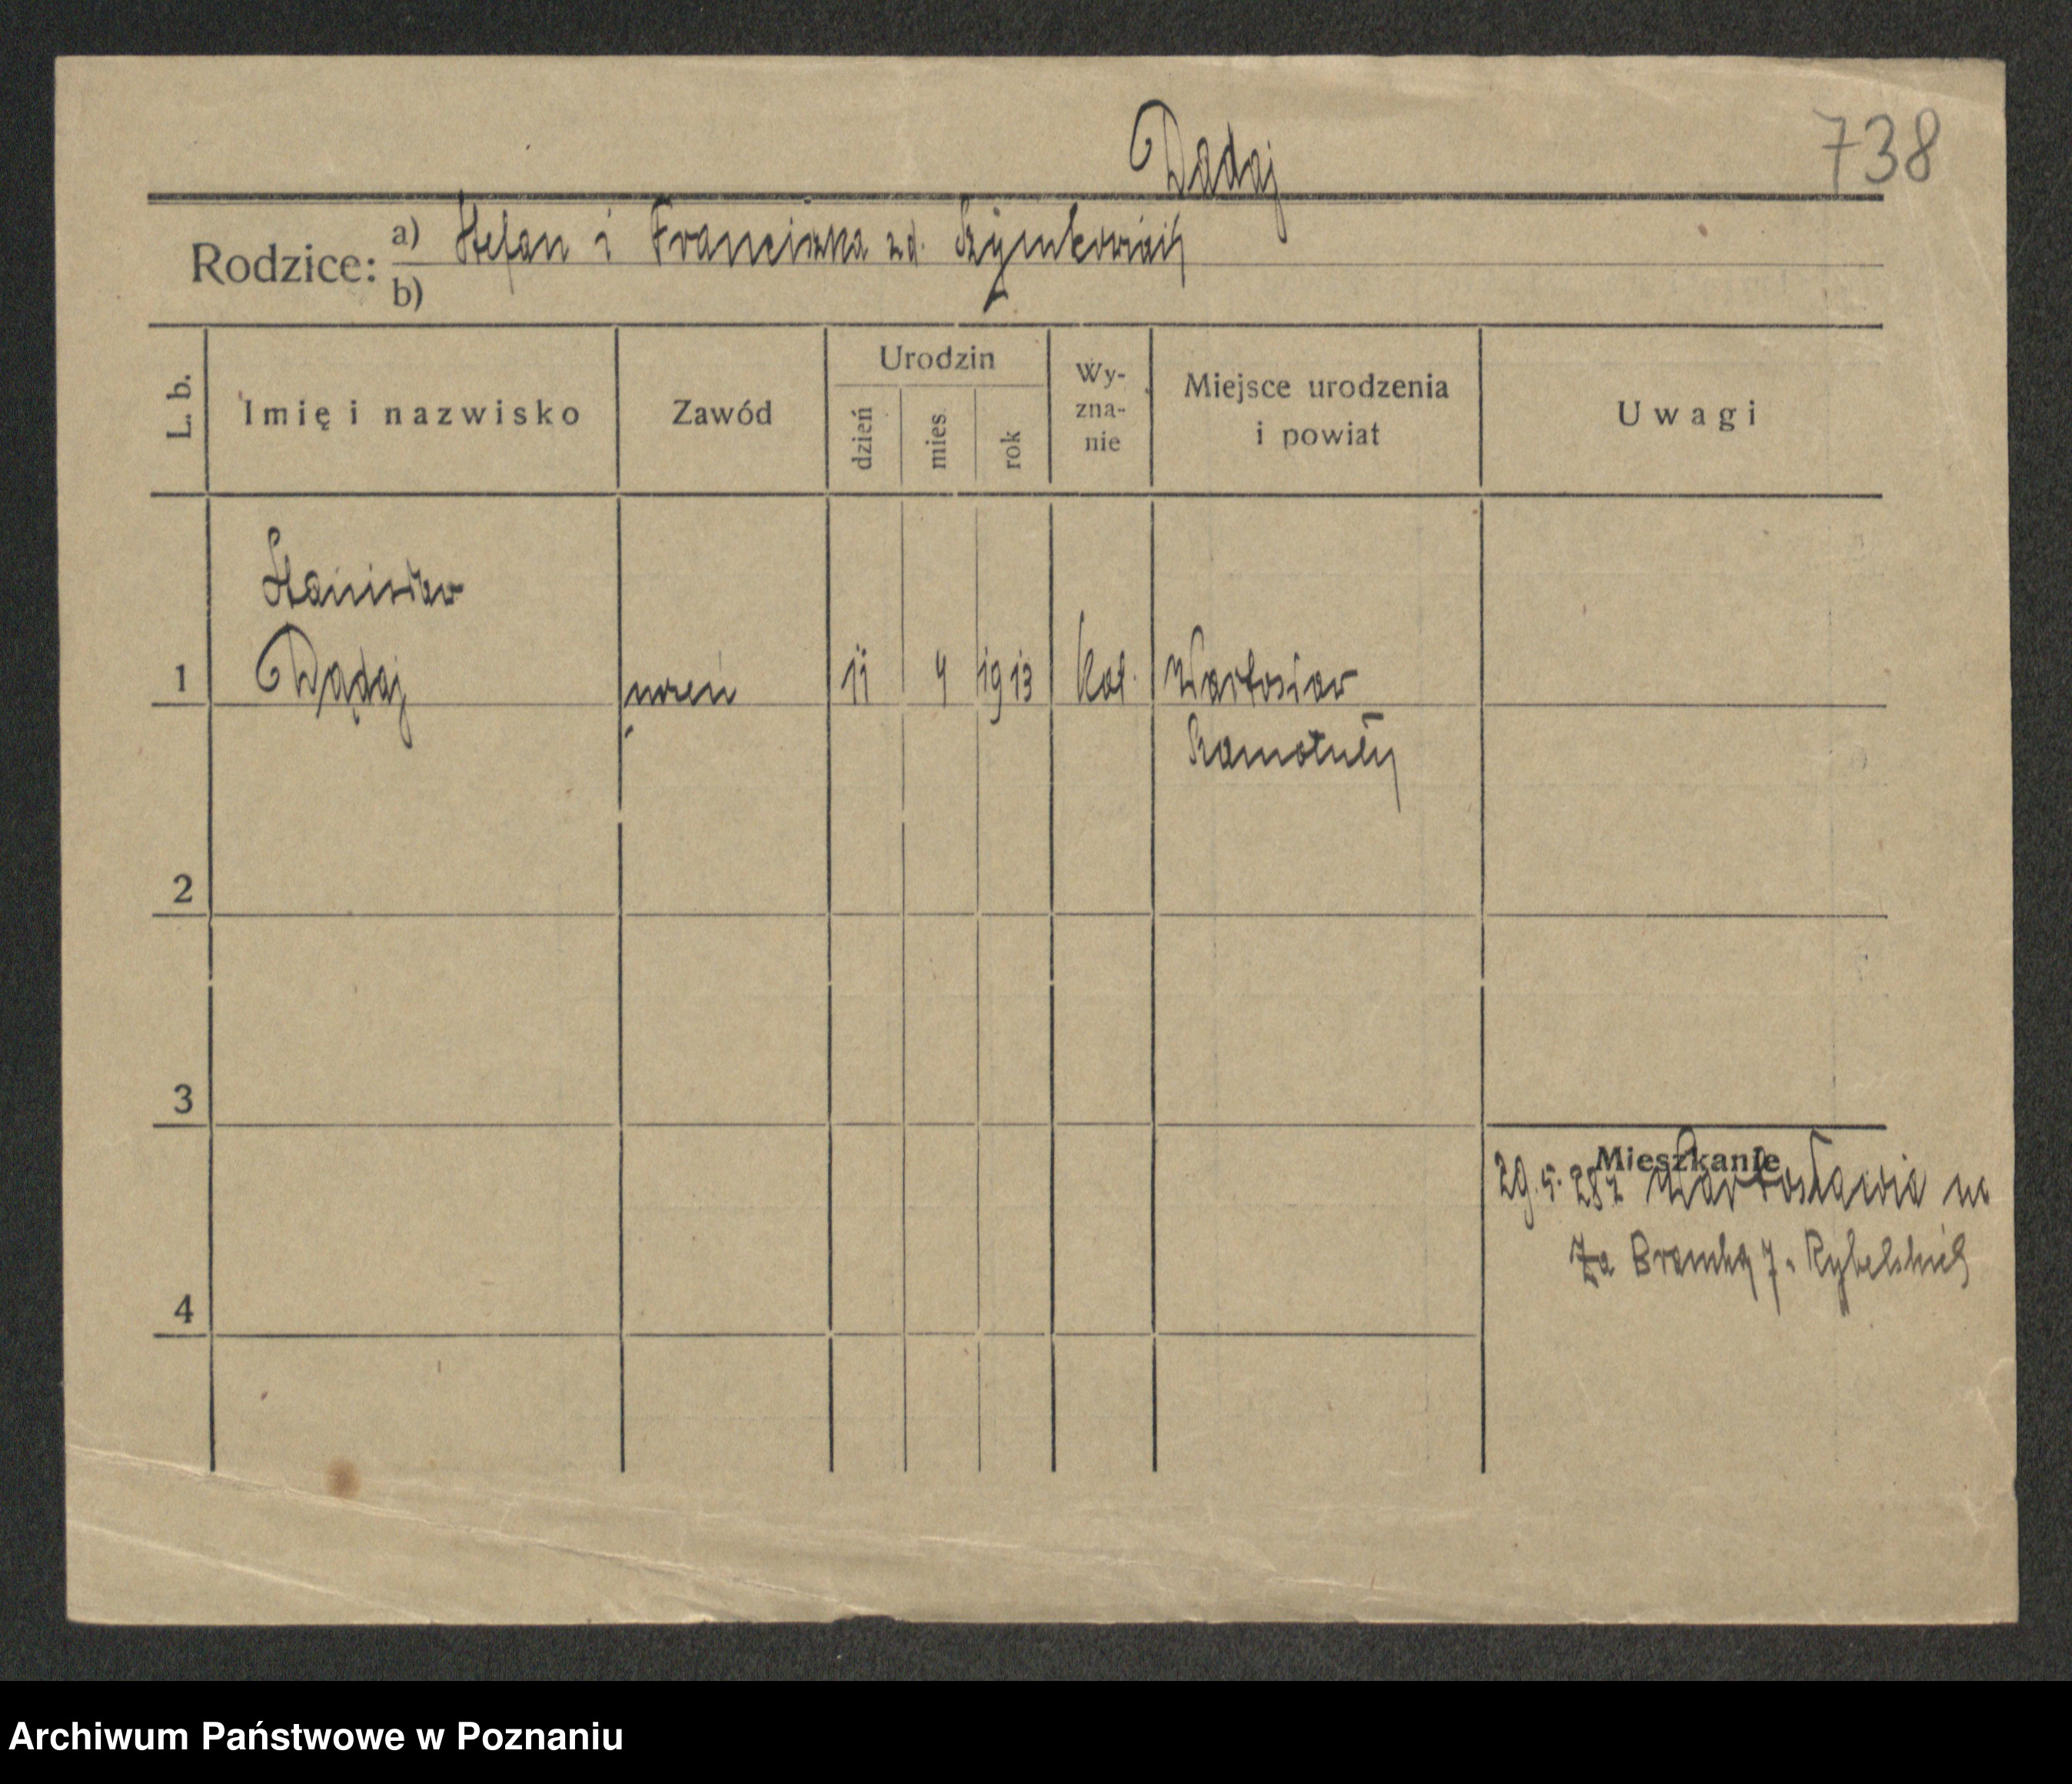 Dadaj
738
Rodzice: a) Stefan i Franciszka zd. Szymkowiak
b)
L. b. Imię i nazwisko Zawód Urodzin dzień mies. rok Wy-zna-nie Miejsce urodzenia i powiat Uwagi
Stanisław
1 Dądaj uczeń 11 4 1913 kat. Wartosław
Szamotuły
2
3
Mieszkanie
29.5.28 z Wartosławia na
Za Bramką 7 u Rybelskich
4
Archiwum Państwowe w Poznaniu